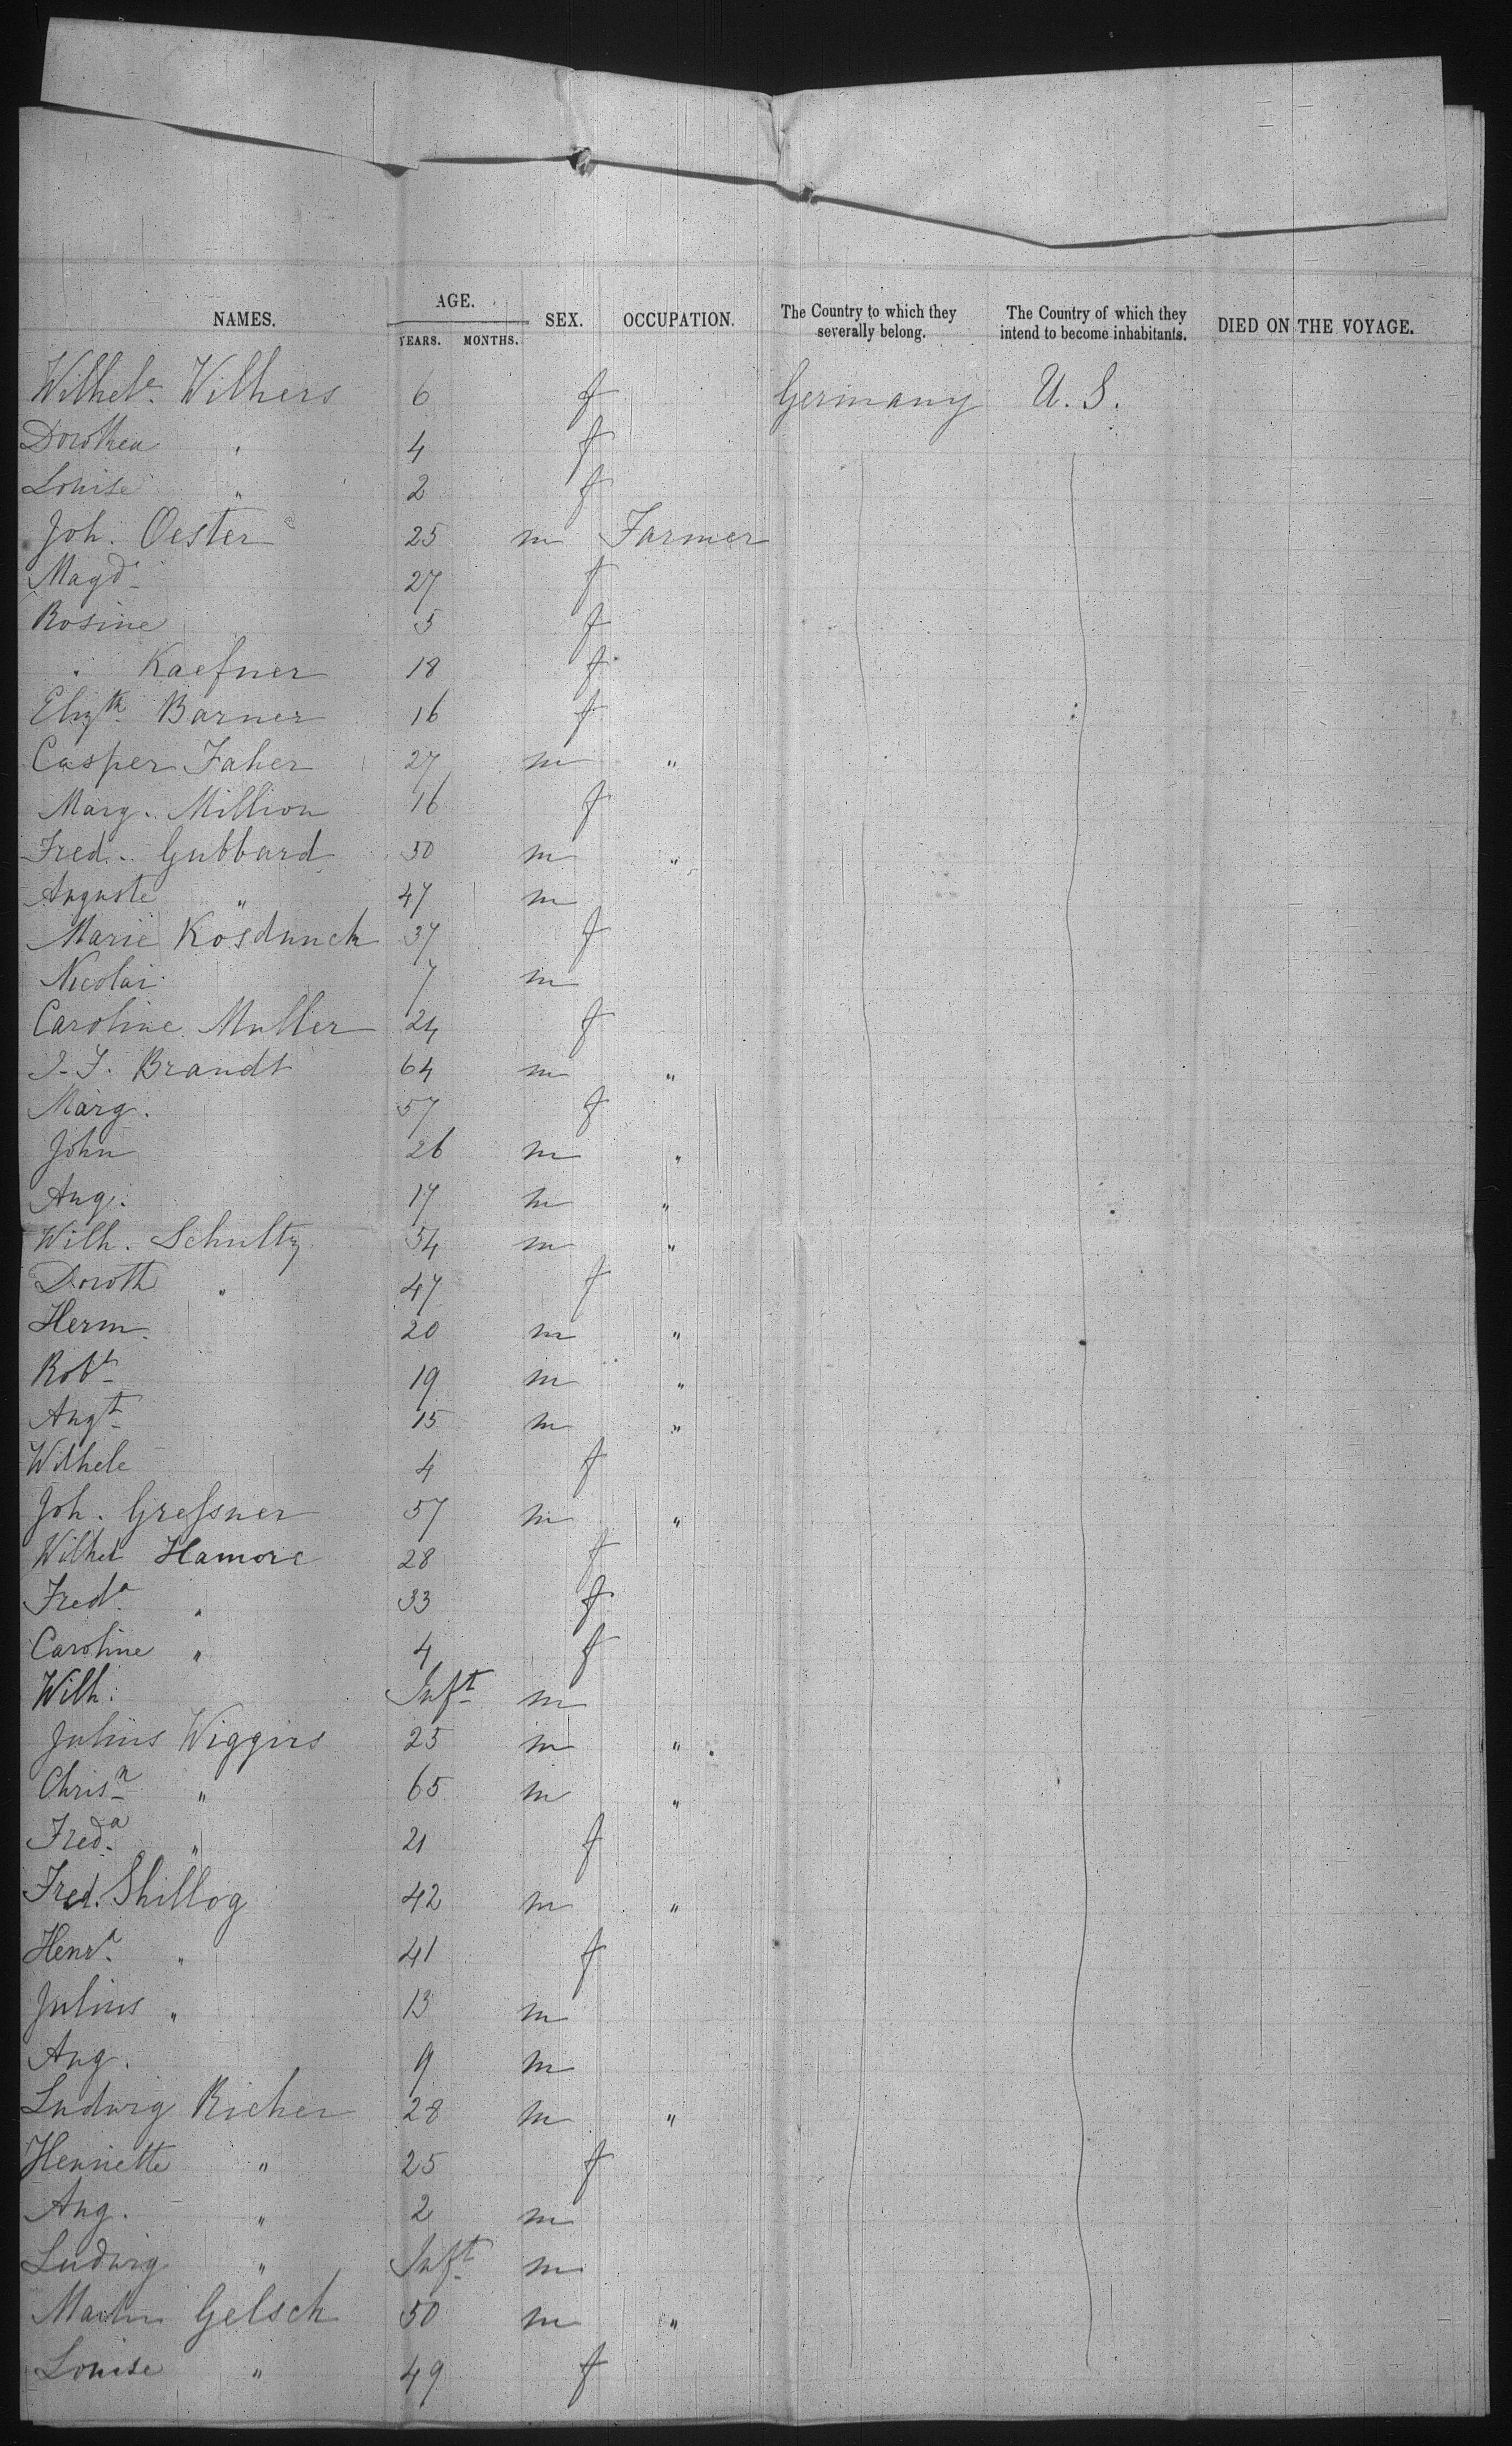 NAMES. AGE. YEARS. MONTHS. SEX. OCCUPATION. The Country to which they severally belong. The Country of which they intend to become inhabitants. DIED ON THE VOYAGE.
Wilhele. Wilhers 6 f Germany U. S.
Dorothea " 4 f
Louise " 2 f
Joh. Oester 25 m Farmer
Magd 27 f
Rosine 5 f
" Kaefner 18 f
Elizth Barner 16 f
Casper Faher 27 m "
Marg. Million 16 f
Fred. Gubbard 50 m "
Auguste " 47 m
Marie Kosdunck 37 f
Nicolai 7 m
Caroline Muller 24 f
J. F. Brandt 64 m "
Marg. 57 f
John 26 m "
Aug. 17 m "
Wilh. Schultz 54 m "
Doroth " 47 f
Herm. 20 m "
Robt 19 m "
Augt 15 m "
Wilhele 4 f
Joh. Greſsner 57 m "
Wilhel Hamore 28 f
Freda " 33 f
Caroline " 4 f
Wilh. Inft m
Julius Wiggirs 25 m "
Chrisn " 65 m "
Freda " 21 f
Fred. Shillog 42 m "
Henra " 41 f
Julius " 13 m
Aug. 9 m
Ludwig Richer 28 m "
Henriette " 25 f
Aug. " 2 m
Ludwig " Inft m
Martin Gelsch 50 m "
Louise " 49 f